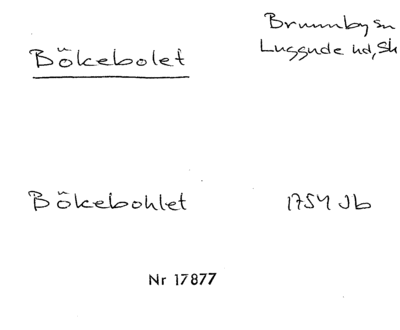 Bökebolet
Brunnby sn
Luggude hd, Sk
Bökebohlet 1754 Jb
Nr 17877